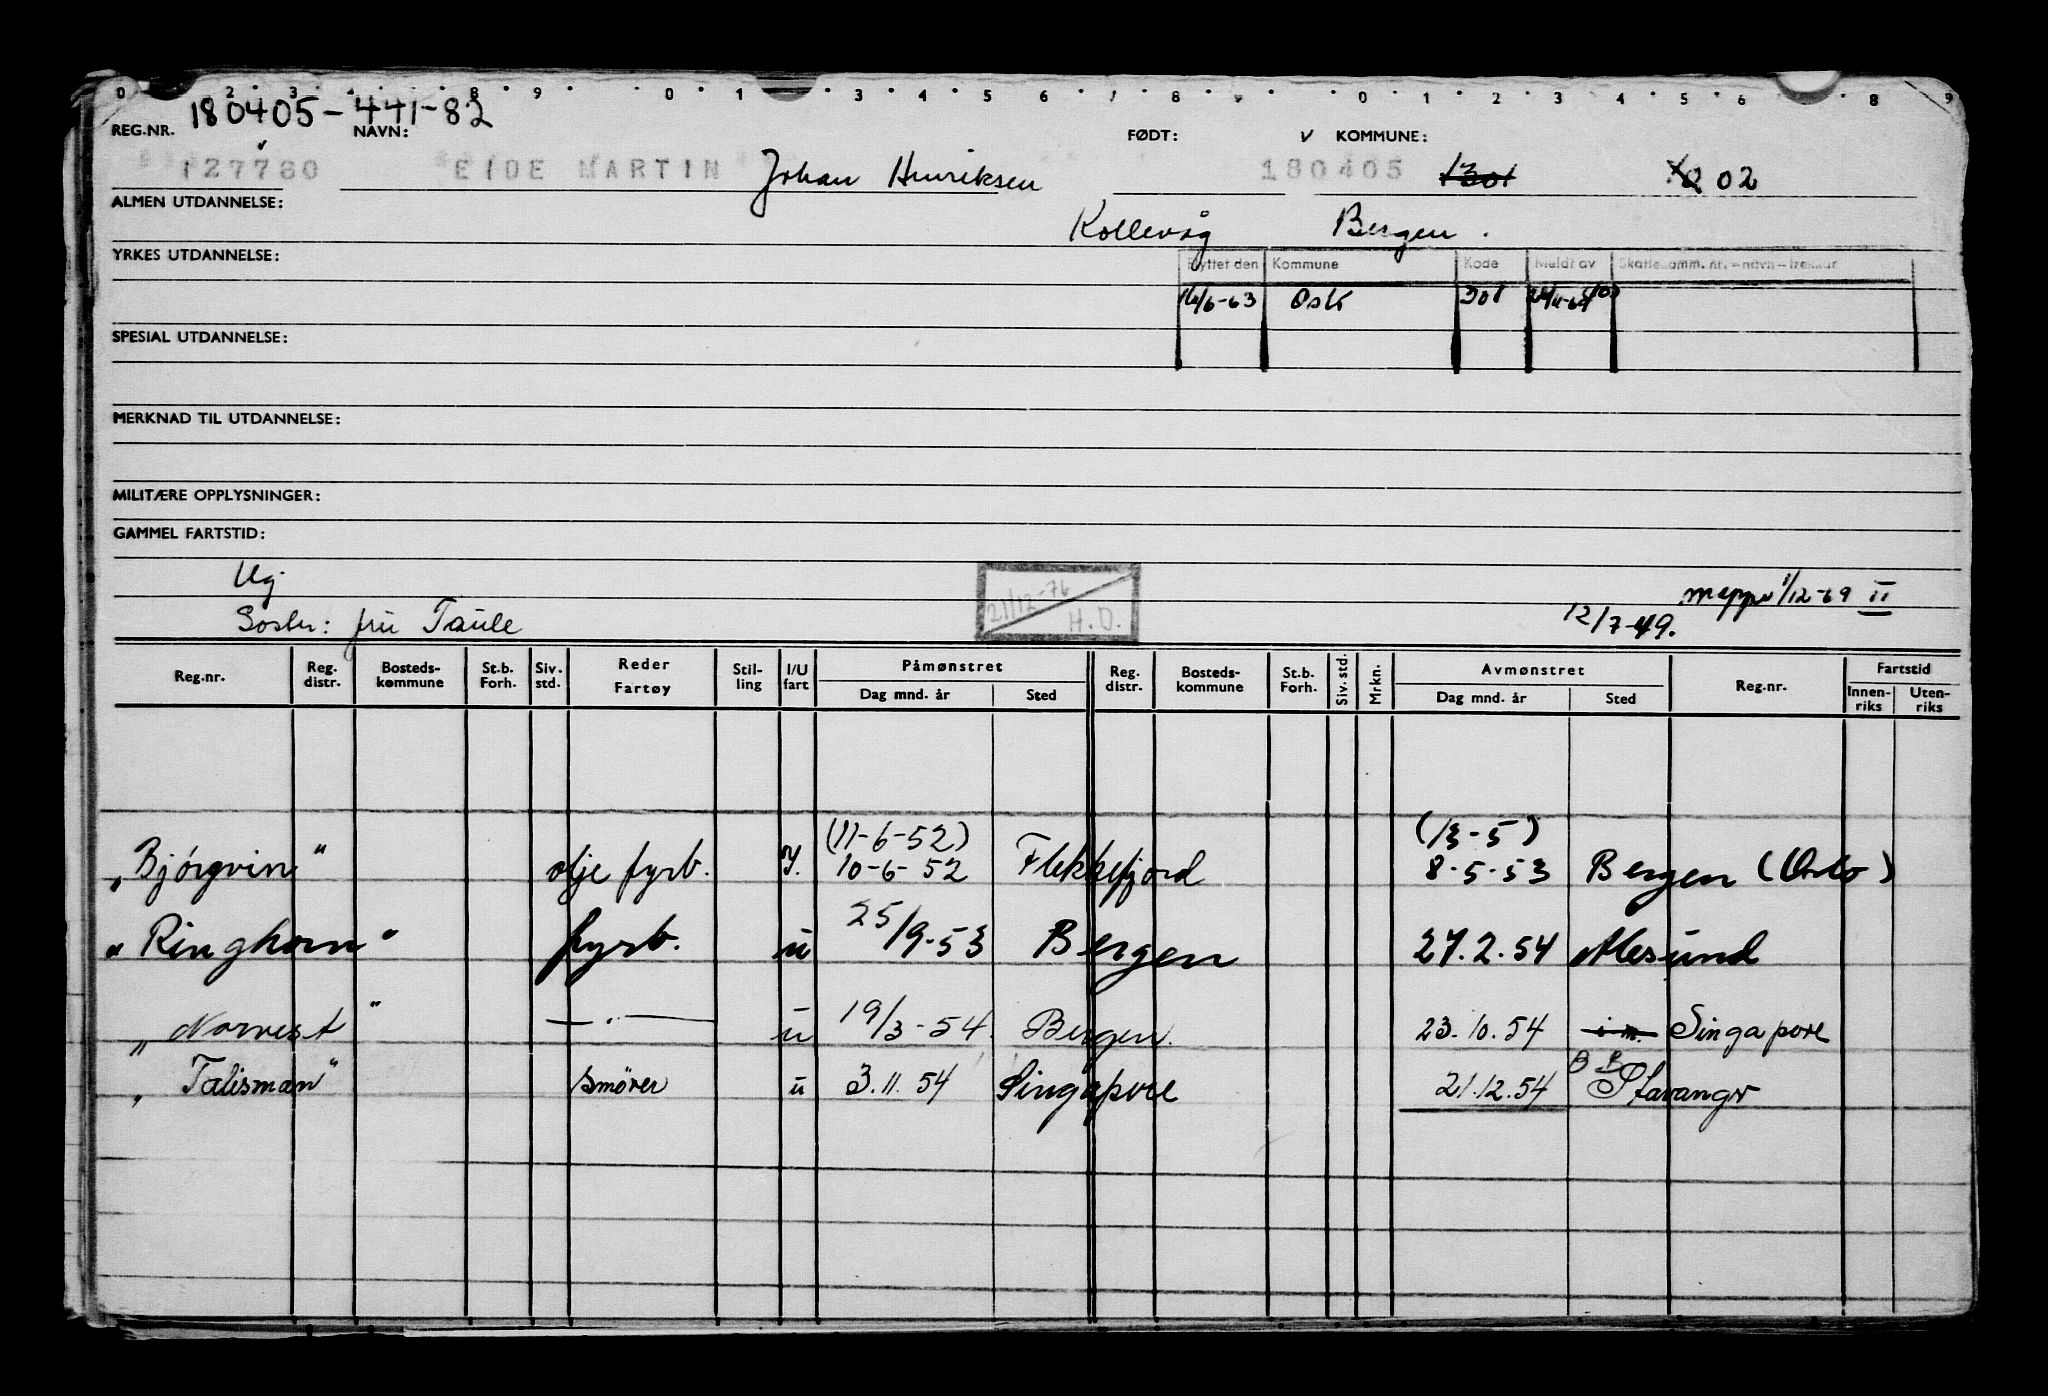 0 2 3 4 8 9 0 1 3 4 5 6 7 8 9 0 1 2 3 4 5 6 8 9
180405-441-82
REG.NR. NAVN: FØDT: v KOMMUNE:
127780 EIDE MARTIN Johan Henriksen 180405 1301 1202
ALMEN UTDANNELSE:
Kollevåg Bergen.
YRKES UTDANNELSE:
Flyttet den Kommune Kode Meldt av Skattekomm. nr. – navn – trekkår
16/6-63 Ask
SPESIAL UTDANNELSE:
MERKNAD TIL UTDANNELSE:
MILITÆRE OPPLYSNINGER:
GAMMEL FARTSTID:
Ug.
21/12-76 H.O.
mappe 1/12-69 II
Søster: fru Taule
12/7-49.
Reg.nr. Reg. distr. Bosteds-kommune St.b. Forh. Siv. std. Reder Fartøy Stil-ling I/U fart Påmønstret Dag mnd. år Sted Reg. distr. Bosteds-kommune St.b. Forh. Siv. std. Mrkn. Avmønstret Dag mnd. år Sted Reg.nr. Fartstid Innen-riks Uten-riks
(11-6-52) (13-5)
„Bjørgvin" olje fyrb. I. 10-6-52 Flekkefjord 8-5-53 Bergen (Oslo)
„Ringhorn" fyrb. u 25/9-53 Bergen 27.2.54 Ålesund
„Norvest" —"— u 19/3-54. Bergen. 23.10.54 i.m. Singapore
„Talisman" smører u 3.11.54 Singapore 21.12.54 BB Stavanger